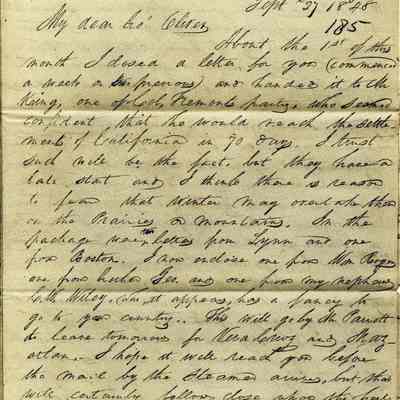 Sept 27 1848
185
My dear
About the 1st of this
month I closed a letter for you (commenced
a week or previous) and handed it to Mr
King, one of Col. Fremonts party, who seemed
confident that he would reach the settle-
ments of California in 70 days. I trust
such will be the fact, but they have a
late start and I think there is reason
to fear that Winter may overtake them
on the Prairies or Mountains. In the
package were letters from Lynn and one
from Boston. I now enclose one from Wm
one from and one from my nephew
it appears, has a fancy to
go to your country. This will go by Mr Parrott
to leave tomorrow for Vera Cruz and Maz-
atlan. I hope it will reach you before
the mail by the Steamer arrives, but that
will certainly follow close upon the